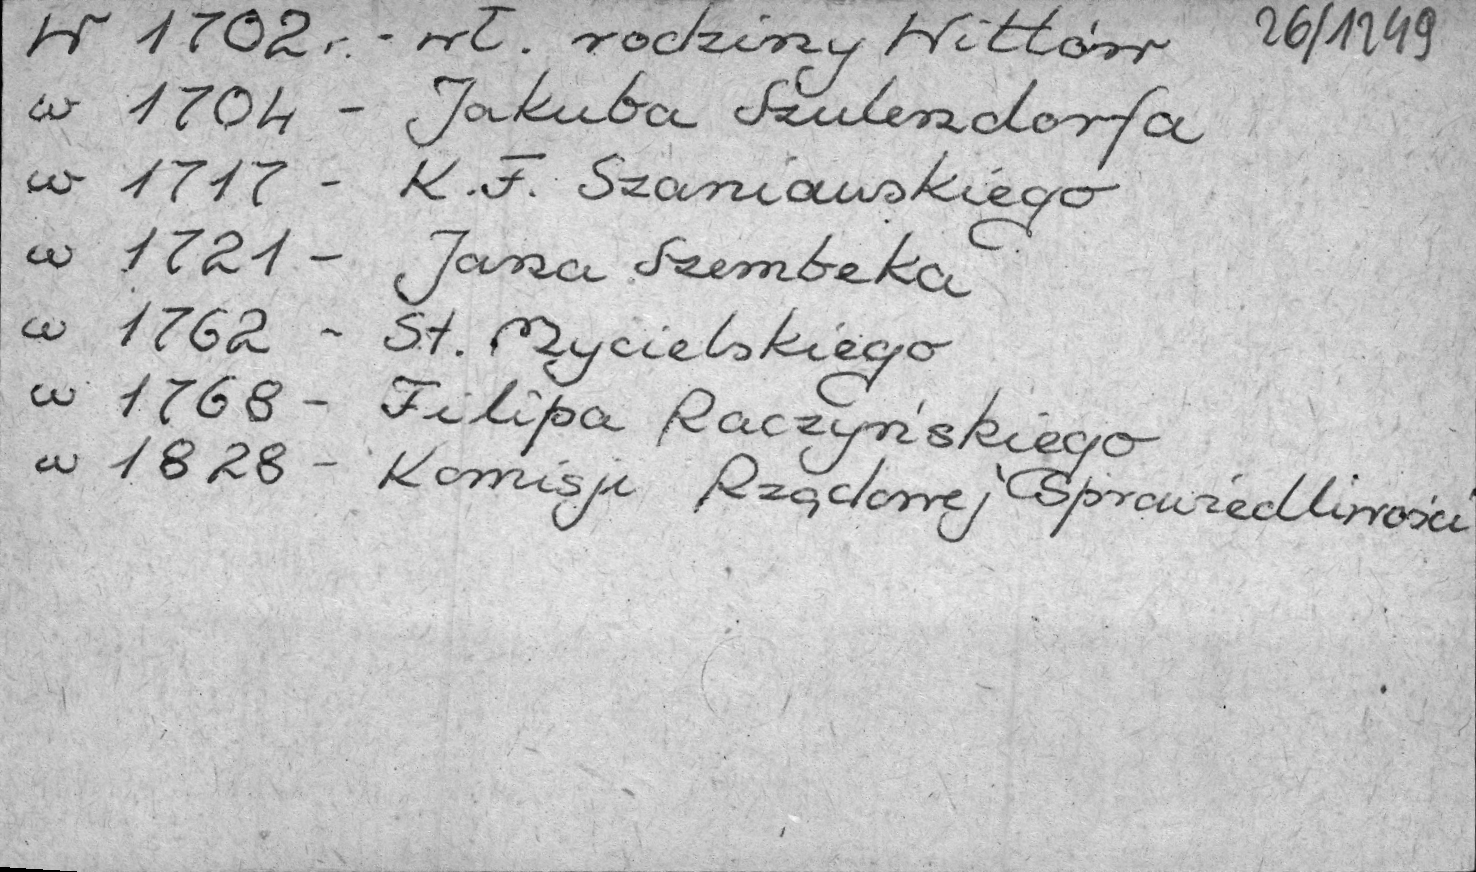 W 1702 r. - wł. rodziny Wittów 26/1249
w 1704 - Jakuba Szulendorfa
w 1717 - K. F. Szaniawskiego
w 1721 - Jana Szembeka
w 1762 - St. Mycielskiego
w 1768 - Filipa Raczyńskiego
w 1828 - Komisji Rządowej Sprawiedliwości